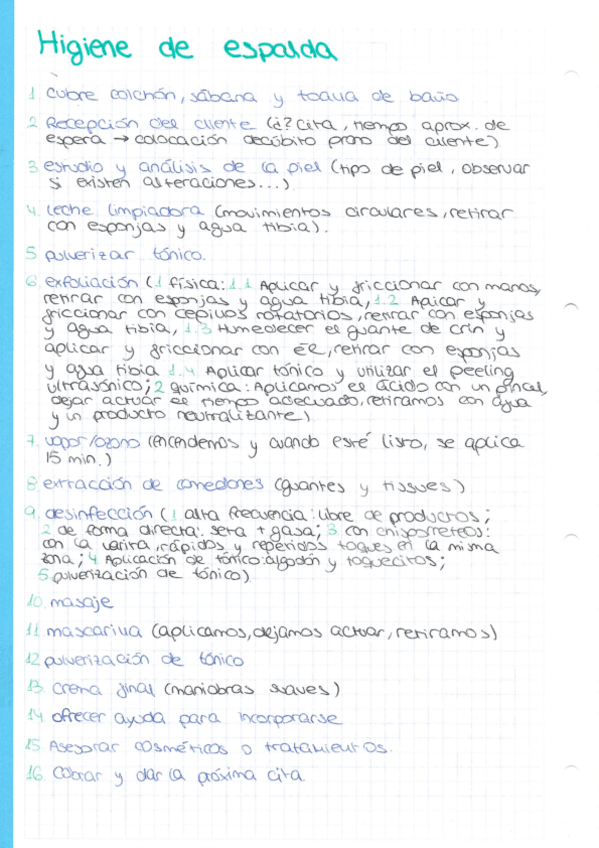 Higiene de espalda
1 Cubre colchón, sábana y toalla de baño
2 Recepción del cliente (¿? cita, tiempo aprox. de
espera → colocación decúbito prono del cliente)
3 estudio y análisis de la piel (tipo de piel, observar
si existen alteraciones...)
4. leche limpiadora (movimientos circulares, retirar
con esponjas y agua tibia).
5 pulverizar tónico.
6. exfoliación (1 física: 1.1 Aplicar y friccionar con manos,
retirar con esponjas y agua tibia, 1.2 Aplicar y
friccionar con cepillos rotatorios, retirar con esponjas
y agua tibia, 1.3 Humedecer el guante de crin y
aplicar y friccionar con él, retirar con esponjas
y agua tibia 1.4 Aplicar tónico y utilizar el peeling
ultrasónico; 2 química: Aplicamos el ácido con un pincel,
dejar actuar el tiempo adecuado, retiramos con agua
y un producto neutralizante)
7. vapor/ozono (encendemos y cuando esté listo, se aplica
15 min.)
8. extracción de comedones (guantes y tissues)
9. desinfección (1 alta frecuencia: libre de productos;
2 de forma directa: seta + gasa; 3 con chisporreteos:
con la varita, rápidos y repetidos toques en la misma
zona; 4 Aplicación de tónico: algodón y toquecitos;
5 pulverización de tónico)
10. masaje
11 mascarilla (aplicamos, dejamos actuar, retiramos)
12 pulverización de tónico
13. crema final (maniobras suaves)
14 ofrecer ayuda para incorporarse
15 Asesorar cosméticos o tratamientos.
16. Cobrar y dar la próxima cita.